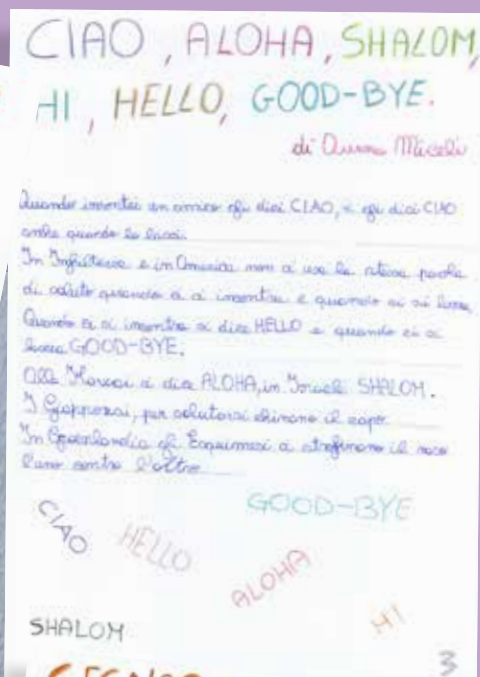 CIAO, ALOHA, SHALOM,
HI, HELLO, GOOD-BYE.
di Miceli
Quando incontri un amico gli dici CIAO, e gli dici CIAO
anche quando lo lasci.
In Inghilterra e in America non si usa la stessa parola
di saluto quando ci si incontra e quando ci si lascia.
Quando ci si incontra si dice HELLO e quando ci si
lascia GOOD-BYE.
Alle Hawaii si dice ALOHA, in Israele SHALOM.
I Giapponesi, per salutarsi chinano il capo.
In Groenlandia gli Esquimesi si strofinano il naso
l'uno contro l'altro.
GOOD-BYE
CIAO
HELLO
ALOHA
HI
SHALOM
3